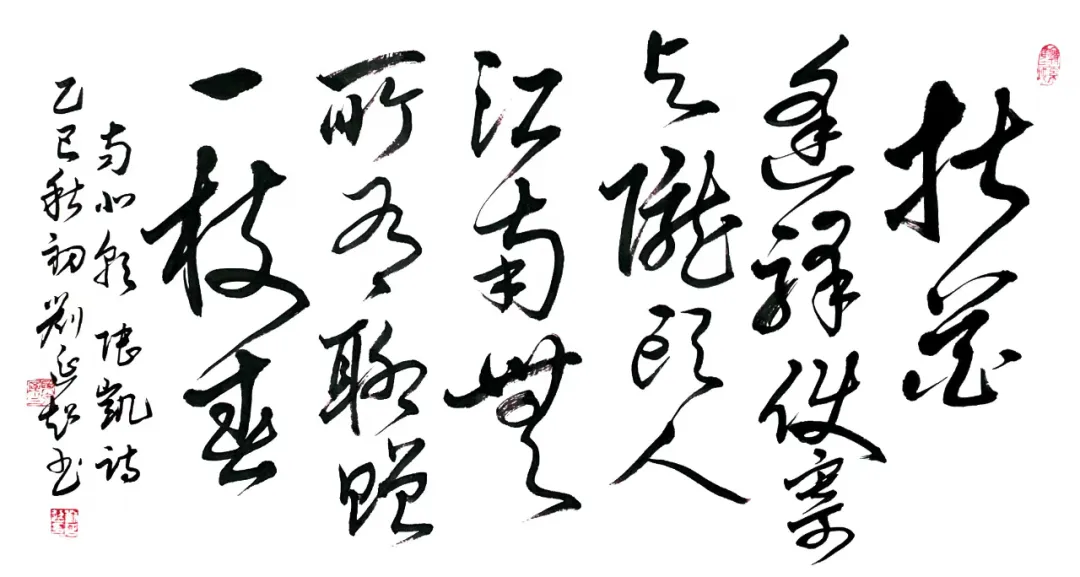 折花
逢驛使寄
与隴頭人
江南無
所有聊贈
一枝春
南北朝陸凱詩
乙巳秋初劉延超書